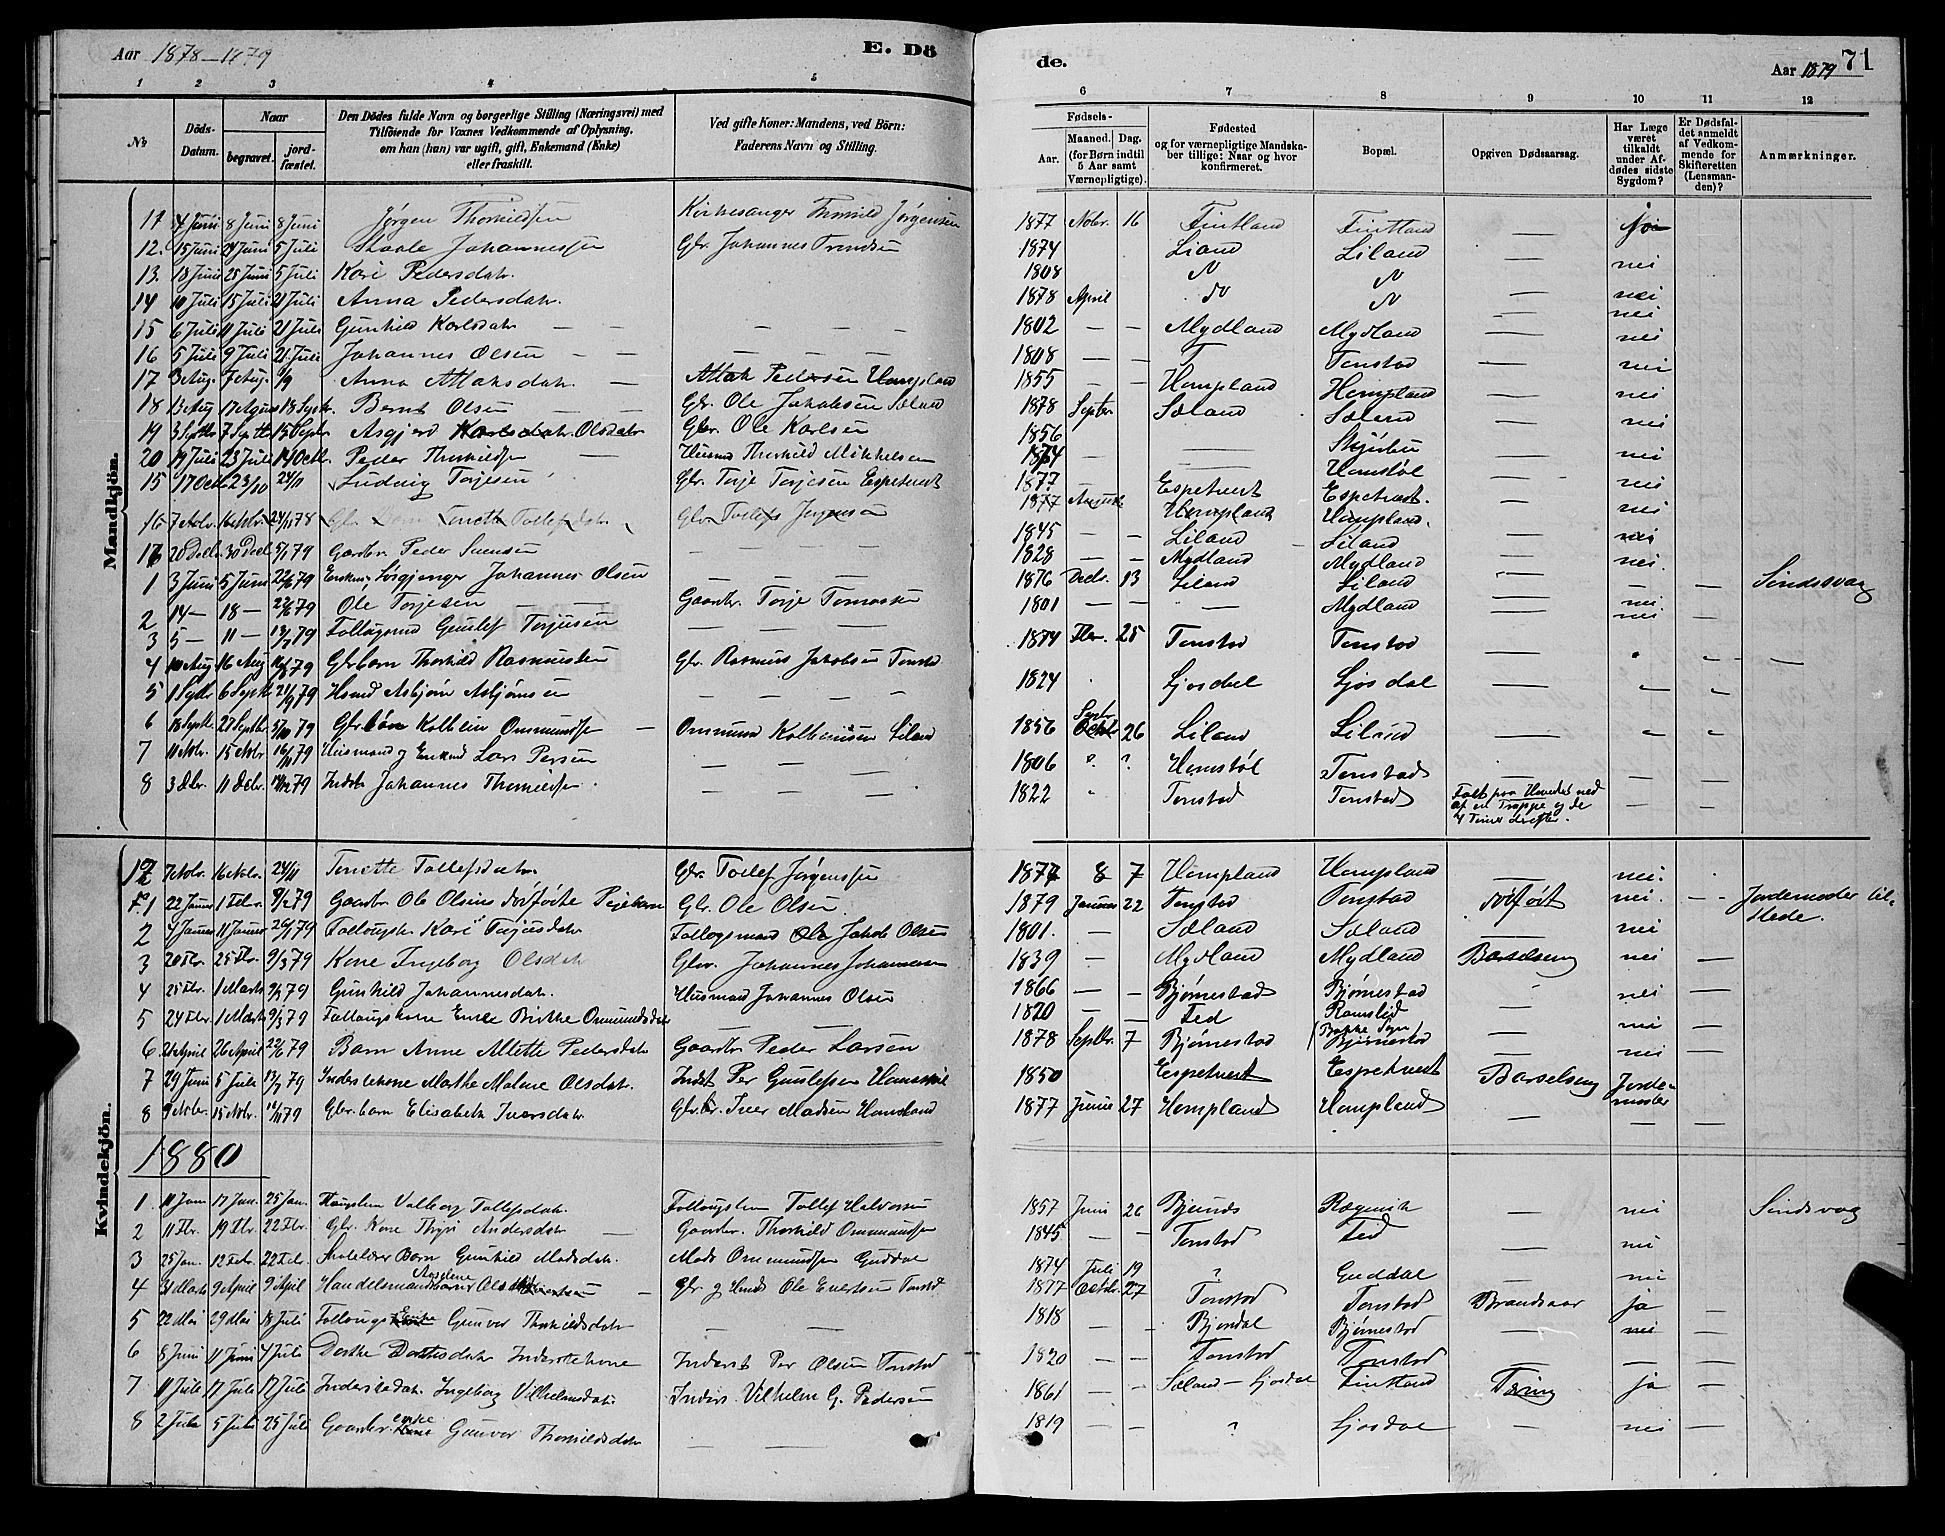 Aar 1878-1879
E. Dö
de.
Aar 1879
71
1 2 3 4 5 6 7 8 9 10 11 12
№
Döds-Datum.
Naar
begravet.
jordfæstet.
Den Dödes fulde Navn og borgerlige Stilling (Næringsvei) med
Tilföiende for Voxnes Vedkommende af Oplysning,
om han (hun) var ugift, gift, Enkemand (Enke)
eller fraskilt.
Ved gifte Koner: Mandens, ved Börn:
Faderens Navn og Stilling.
Fødsels-
Aar.
Maaned. Dag.
(for Børn indtil
5 Aar samt
Værnepligtige).
Fødested
og for værnepligtige Mandska-
ber tillige: Naar og hvor
konfirmeret.
Bopæl.
Opgiven Dødsaarsag.
Har Læge
været
tilkaldt
under Af-
dødes sidste
Sygdom?
Er Dødsfal-
det anmeldt
af Vedkom-
mende for
Skifteretten
(Lensman-
den)?
Anmærkninger.
Mandkjön.
11 4 Juni 8 Juni 8 Juni Jørgen Thorkildsen Kirkesanger Thorkild Jørgensen 1877 Nobr. 16 Fintland Fintland —
12. 15 Juni 24 Juni 5 Juli Staale Johannessen Gbr. Johannes Trondsen 1874 Liland Liland — nei
13. 18 Juni 25 Juni 5 Juli Kari Pedersdatr. 1808 — nei
14 10 Juli 15 Juli 21 Juli Anna Pedersdatr. 1878 April — nei
15 6 Juli 11 Juli 21 Juli Gunhild Karlsdatr — — 1802 — — Mydland Mydland — nei
16 5 Juli 9 Juli 21. Juli Johannes Olsen — — 1808 — — T Tonstad — nei
17 3 Aug. 7 Aug. 1/9 Anna Atlaksdatr. — Atlak Pedersen Hompland 1855 — — Hompland Hompland — nei
18 13 Aug 17 August 18 Septr. Bernt Olsen — — Gbr. Ole Jakobsen Sæland 1878 Septbr Sæland Sæland — nei
19 3 Septbr 7 Septbr 15 Septbr Asgjerd Olsdatr Gbr. Ole Karlsen 1856 — nei
20 19 Juli 23 Juli 14 Octb. Peder Thorkildsen — Husmd Thorkild Mikkelsen 1874 — — Homstøl — nei
15 17 Octb. 23/10 24/11 Ludvig Torjesen Gbr. Torje Torjesen Espetvedt 1877 — Espetvedt Espetvedt. — nei
16 7 Nobr. 16 Nobr. 24/11 78 Gbr. Barn Tonette Tollefsdatr Gbr Tollefs Jørgensen 1877 August Hompland Hompland. — nei
16 20 Decb. 30 Decb. 5/1 79 Gaardbr. Peder Svensen — — 1845 — — Liland Liland — nei
1 3 Juni 5 Juni 22/6 79 Johannes Olsen — — 1828 — — Mydland Mydland — nei.
2 14 — 18 — 22/6 79 Ole Torjesen — — Gaardbr. Torje Tomassen 1876 Decbr. 13 Liland Liland — — — Sindssvag
3 5 — 11 — 13/7 79 Gunlef Torjusen — — 1801 — — — Mydland — nei
4 10 Aug 16 Aug 79 Gbr barn Thorkild Rasmussen Gbr. Rasmus Jakobsen Tonstad 1874 Fbr. 25 Tonstad Tonstad —
5 1 Septbr 6 Septb 21/9 79 Husmd Asbjørn Asbjørnsen — — 1824 Ljosdal Ljosdal —
6 18 Septb. 27 Septbr 5/10 79 Gbr søn Kolbein Ommundsen — Ommund Kolbeinsen Liland 1856 Septr 26 Liland Liland —
7 11 Nobr. 15 Nobr. 16/11 79 Husmand og Enkemd Lars Persen — — 1806 ? ? Homstøl Tonstad —
8 3 Dcbr. 11 Dcbr. 79 Inderst Johannes Thorkildsen — — 1822 Tonstad Tonstad Faldt paa Hovedet ned
af en Trappe og de
4 Timer derefter. — —
Kvindekjön.
12 7 Nobr. 16 Nobr. 24/11 Tonette Tollefsdatr. Gbr. Tollef Jørgensen 1877 8 7 Hompland Hompland — nei.
F.1 22 Januar 1 Febr. 9/2 79 Gaardbr Ole Olsens dødfødte Pigebarn Gbr. Ole Olsen. 1879 Januar 22 Tonstad Tonstad dødfødt nei. — Jordemoder til-
stede.
2 4 Januar 11 Januar 26/1 79 Kari Torjusdatr Jakob Olsen 1801. — Sæland Sæland — nei
3 20 Fbr. 25 Fbr. 9/3 79 Kone Ingeborg Olsdatr Gbr. Johannes Johannesen 1839 — Mydland Mydland Barselseng nei —
4 25 Fbr. 1 Marts 9/3 79 Gunhild Johannesdatr. Husmand Johannes Olsen 1866 — — Bjørnestad Bjørnestad nei —
5 24 Fbr. 1 Marts 9/3 79 Birthe Ommundsdatr — — 1820 — Fed — nei —
6 21 April 26 April 22/6 79 Barn Anne Alette Pedersdatr Gaardbr Peder Larsen 1878 Septbr. 7 Bjørnestad Bjørnestad — nei —
7 29 Juni 5 Juli 13/7 79 Inderstekone Marthe Malene Olsdatr. Inderst Per Gunlefsen 1850 Espetvedt Espetvedt Barselseng Jorde-
moder —
8 9 Nobr. 15 Nobr. 16/11 79 Gbr. barn Elisabeth Iversdatr. Gbr. Iver Madsen 1877 Junii 27 Hompland Hompland — — —
1880
1. 11 Jan 17 Jan. 25 Jan. Valborg Tollefsdatr. Tollef Halvorsen 1857 Juni 26 — nei Sindssvag
2 11 Fbr. 19 Fbr. 22 Fbr. Gbr. Kone Thyri Andersdatr — Gaardbr. Thorkild Ommundsen 1845 — — Tonstad Fed — nei
3 25 Jan. 12 Febr. 22 Febr. Barn Gunhild Madsdatr. Mads Ommundsen Guddal 1874 Juli 19 ? Guddal — nei
4 31 Marts 9 April 9 April — Gbr og Ole Evertsen Tonstad 1877 Octbr. 27 Tonstad Tonstad Brandsaar ja —
5 22 Mai 29 Mai 18 Juli Gunvor Thorkildsdatr — — 1818 — Bjørnestad — nei —
6 8 Juni 11 Juni 4 Juli Dorthe Inderstekone Inderst Per Olsen Tonstad 1820 — — Tonstad Tonstad — — —
7 11 Juli 17 Juli 17 Juli Ingeborg Vilhelmsdatr. Inders. Vilhelm G. Pedersen 1861 — — Sæland — Ljosdal Fintland Tæring ja —
8 2 Juli 5 Juli 25 Juli Gaardbr. enke Gunvor Thorkildsdatr — — 1819 ? Ljosdal — nei —